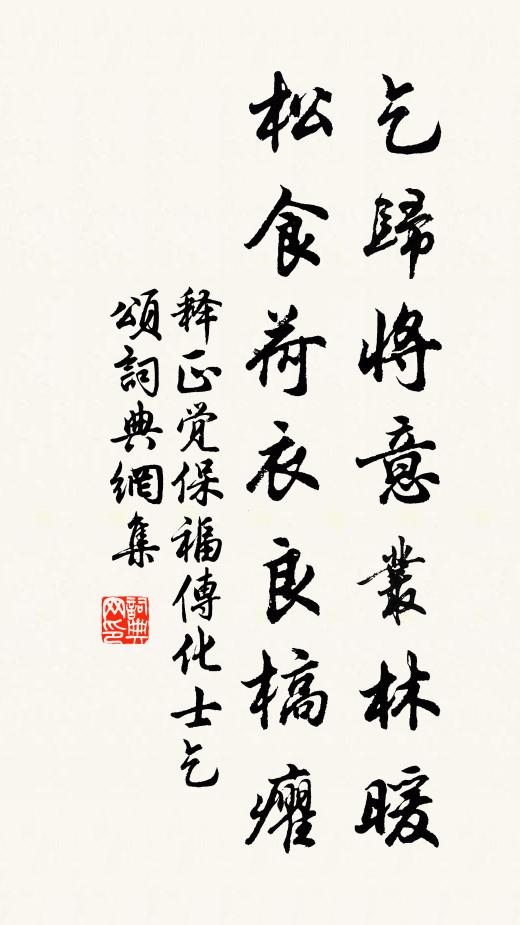 乞歸將意叢林暖
松食荷衣良槁癯
释正觉保福傳化士乞
頌詞典網集
詞典
网印